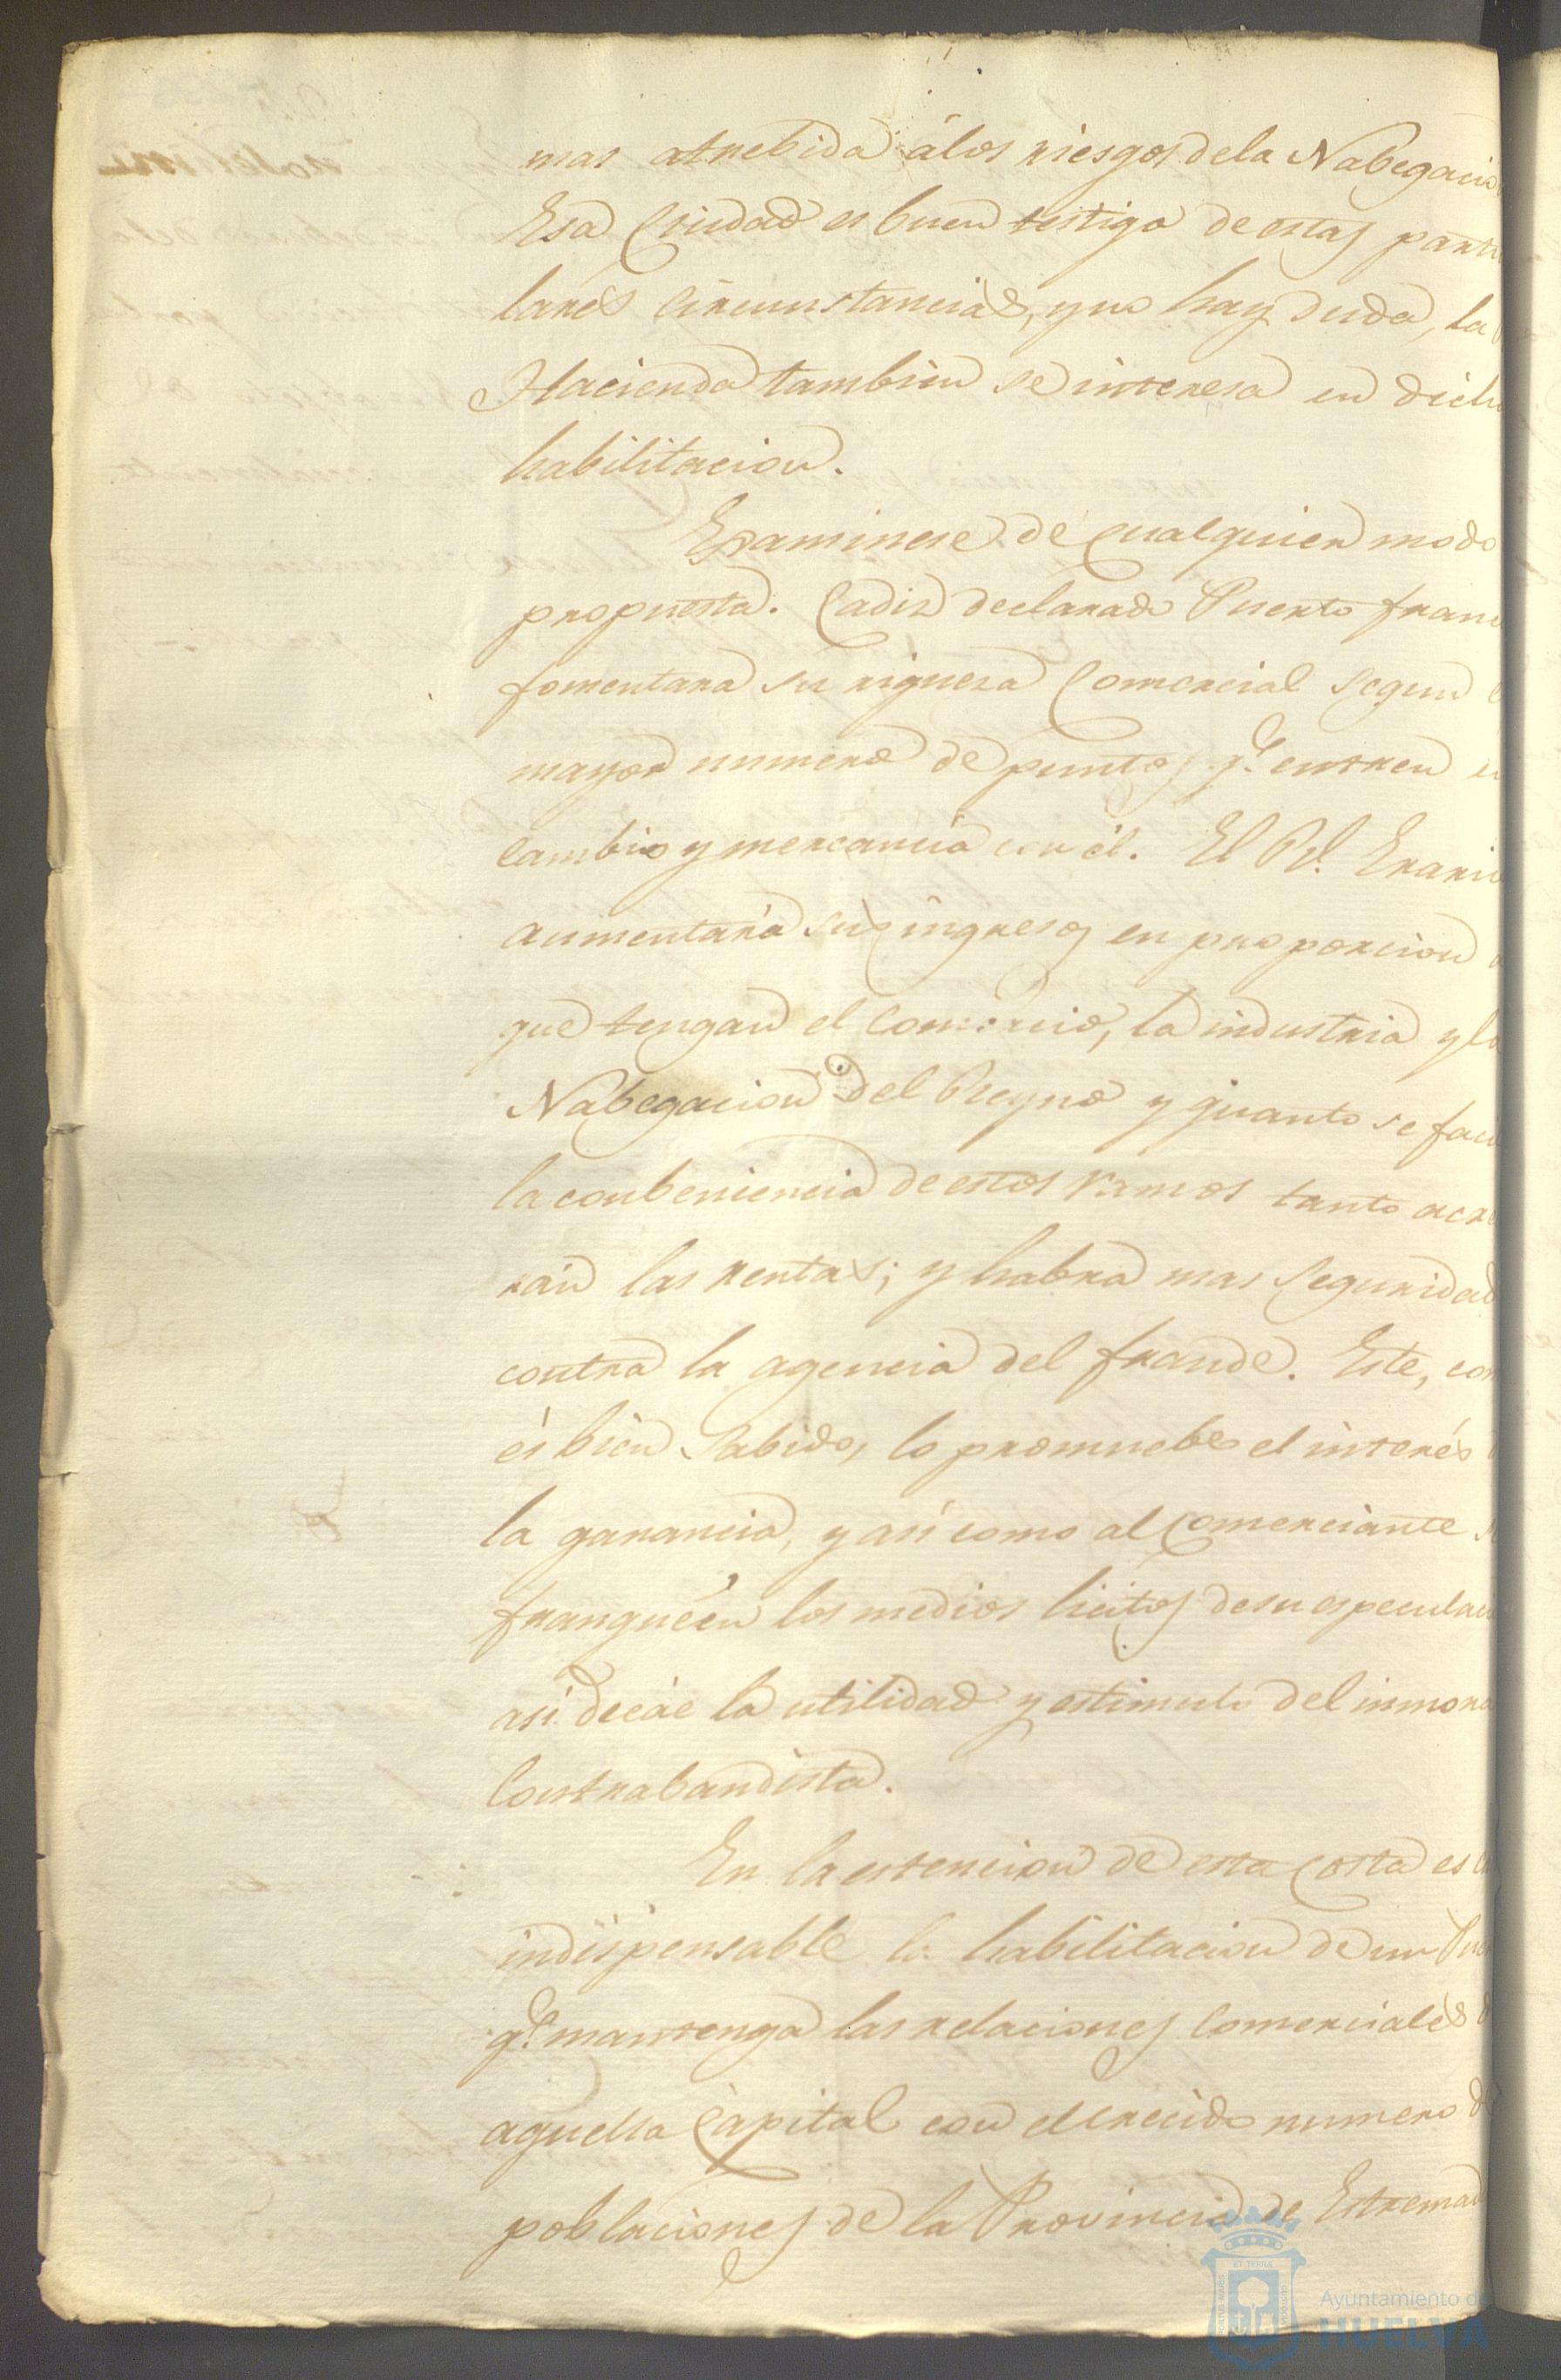 mas atrebida á los riesgos de la Nabegacio
Esa Ciudad es buen testigo de estas partic
lares circunstancias, y no hay duda, la
Hacienda tambien se interesa en dich
habilitacion.
Examinese de qualquier modo
propuesta. Cadiz declarado Puerto franc
fomentara su riqueza Comercial segun
mayor numero de puntos q.e entren en
cambio y mercancia con él. El Rl. Erario
aumentará sus ingresos en proporcion
que tengan el comercio, la industria y la
Nabegacion del Reyno y quanto se faci
la conbeniencia de estos ramos tanto acre
rán las rentas; y habra mas seguridad
contra la agencia del fraude. Este, com
és bien sabido, lo promuebe el interés
la ganancia, y asi como al Comerciante se
franquéen los medios licitos de su especulaci
asi decáe la utilidad y estimulo del inmora
Contrabandista.
En la estencion de esta Costa es
indispensable la habilitacion de un Pue
q.e mantenga las relaciones Comerciales
aquella Capital con el crecido numero d
poblaciones de la Provincia de Estremad
Ayuntamiento de
HUELVA